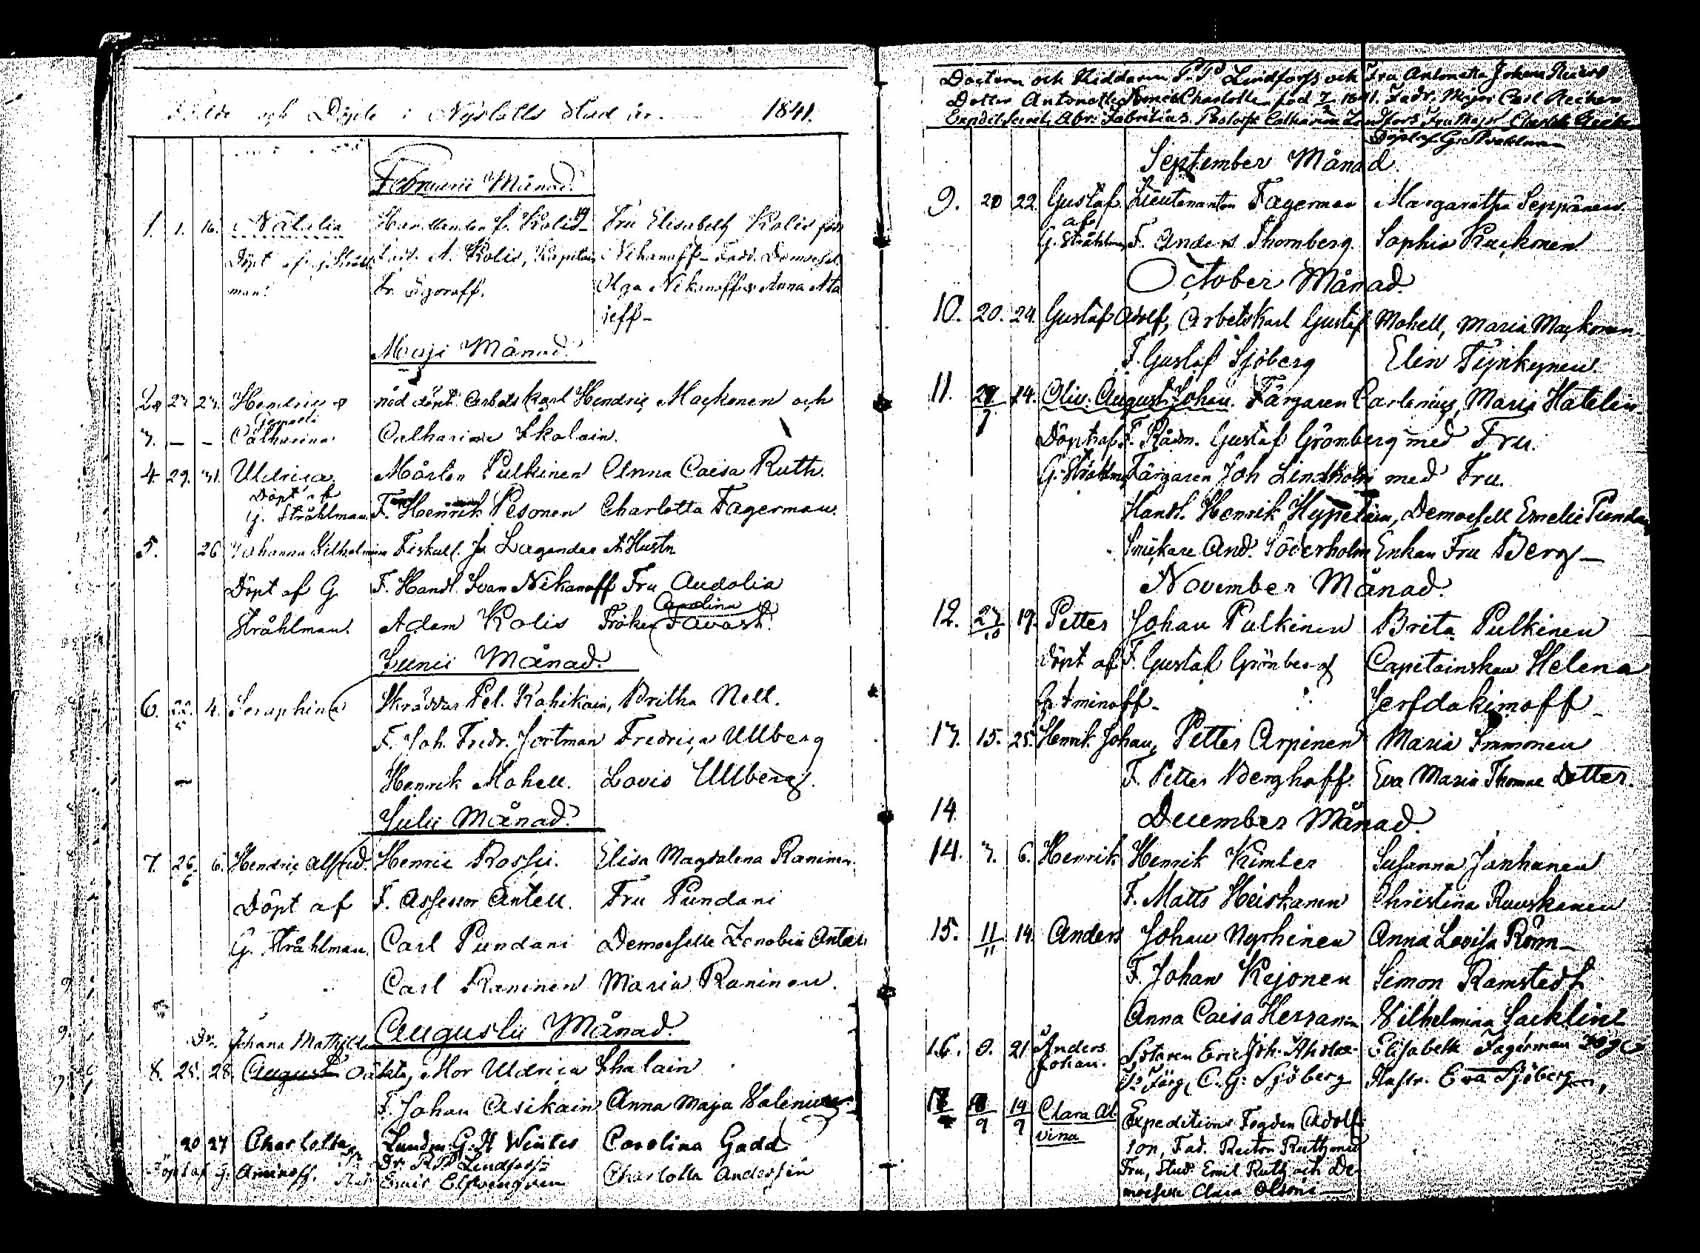 Födde och Döpte i Nyslotts stad år 1841.
Februarii Månad.
1. 1. 16. Natalia Handlanden Kolis Fru Elisabeth Kolis född
Döpt af g. Stråhl Fadd. A. Kolis, Kapiten Nikanoff - Fadd. Demoisel
man. Fr. Egoroff. Olga Nikanoff & Anna Ala
jeff -
Maji Månad.
2. 27 27. Hendric & nöd döpt. Arbets karl Hendric Mackonen och
gemelli
3. — — Catharina Catharina Skolain.
4 29. 31. Uldrica Mårten Pulkinen Anna Caisa Ruth.
Döpt af
G. Stråhlman. F. Henrik Pesonen Charlotta Fagerman.
5. 26 Johanna Vilhelmina Fiskall. J. Lagander A. Hustr
Döpt af G F. Handl. Ivan Nikanoff Fru Audolia
Carolina
Stråhlman. Adam Kolis Fröken Tavast.
Junii Månad.
6. 22/5 4. Seraphina Skräddar Pet. Kahikain, Britha Nell.
F. Joh. Fredr. Jortman Fredrica Ullberg
— Henrik Mohell. Lovis Ullberg.
Julii Månad.
7. 26/6 6. Hendric Alfred. Henric Rossi. Elisa Magdalena Raninen.
Döpt af F. Assessor Antell. Fru Pundani
G. Stråhlman. Carl Pundani Demoiselle Zenobia Antell
Carl Raninen Maria Raninen.
Augusti Månad.
Johana Mathilda
8. 25. 28. August Oäkta, Mor Uldrica Skalain
F. Johan Asikain Anna Maja Valenius
20 27 Charlotta G. A Winter Carolina Gadd
Döpt af G. Aminoff. Dr. P. P. Lindforss Charlotta Andersin
Emil Elfvengren
Doctorn och Riddaren P. P. Lindforss och Fru Antonetta Johana Reiers
Dotter Antonette Charlotta född 7/2 1841. Fadr. Major Carl Reiher
Expedit. Secret. Abr. Fabritius. Catharina Lindfors Fru Major Charlotte Reiher
Döpt af G. Stråhlman
September Månad.
9. 20 22. Gustaf Lieutenanten Fagerman Margaretha Seppänen.
af
G. Stråhlm. F. Anders Thornberg. Sophia Kuckonen
October Månad.
10. 20. 24. Gustaf Adolf, Arbetskarl Gustaf Mohell, Maria Mackonen.
F. Gustaf Sjöberg Elin Tynkynen.
11. 29/7 14. Oliv. August Johan. Färgaren Carlenius, Maria Hatelen
Döpt af F. Rådm. Gustaf Grönberg med Fru.
G. Stråhlm. Färgaren Joh Lindholm med Fru.
Handl. Henrik Hypelein, Demoisell Emelie Pundan
Snickare And. Söderholm Enkan Fru Berg —
November Månad.
12. 27/10 19. Petter Johan Pulkinen Brita Pulkinen
Döpt af F. Gustaf Grönberg Capitainskan Helena
G. Aminoff - Jerfdokimoff -
13. 15. 25. Henrik Johan, Petter Arpinen Maria Immonen
F. Petter Berghoff. Eva Maria Thomas Dotter.
14. December Månad.
14. 3. 6. Henrik Henrik Kimber Susanna Janhanen
F. Matts Heiskanen Christina Ruuskanen
15. 11/11 14. Anders Johan Nyrhinen Anna Lovisa Rönn —
F. Johan Kejonen Simon Ramstedt
Anna Caisa Herranen Vilhelmina Sacklin
16. 8. 21 Anders Notarien Eric Joh. Elisabeth Fagerman
Johan. F. Färg. C. G. Sjöberg Hustr. Eva Sjöberg,
17 18/9 19/9 Clara Al Expeditions Fogden Adolf
vina son, Fad. Rector Ruth med
Fru, Stud. Emil Ruth och De
moiselle Clara Olsoni —